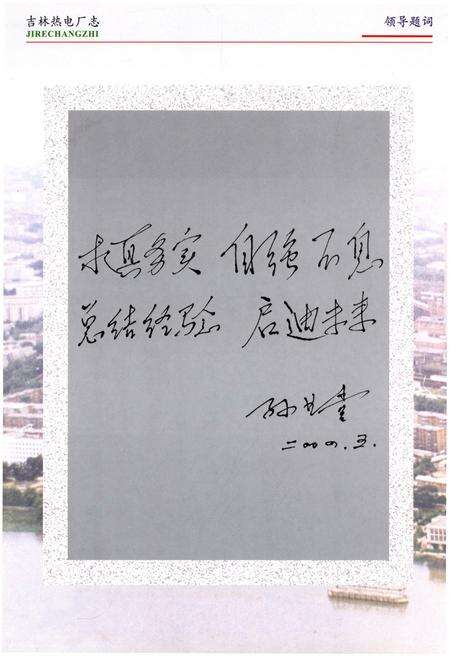 吉林热电厂志
JIRECHANGZHI
领导题词
求真务实 自强不息
总结经验 启迪未来